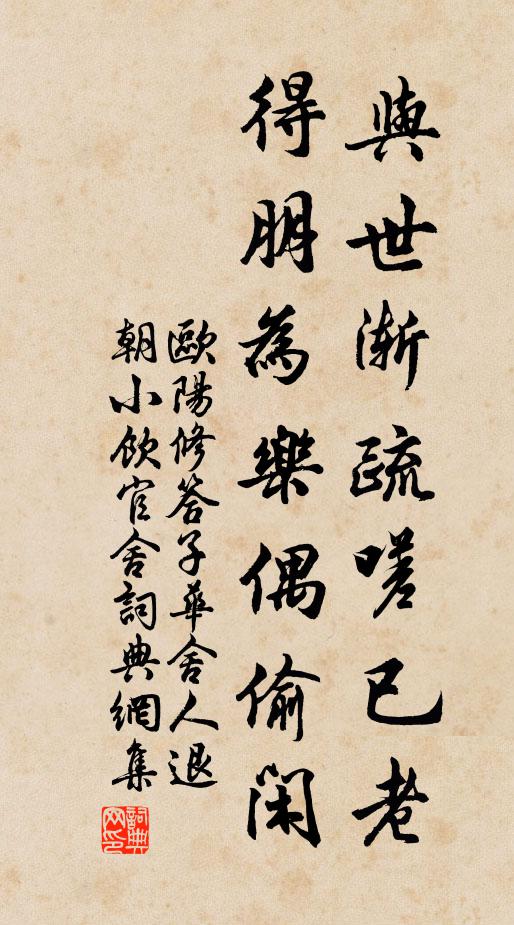 與世漸疏嗟已老
得朋為樂偶偷閑
歐陽修答子華舍人退
朝小飲官舍詞典網集
詞典
网印